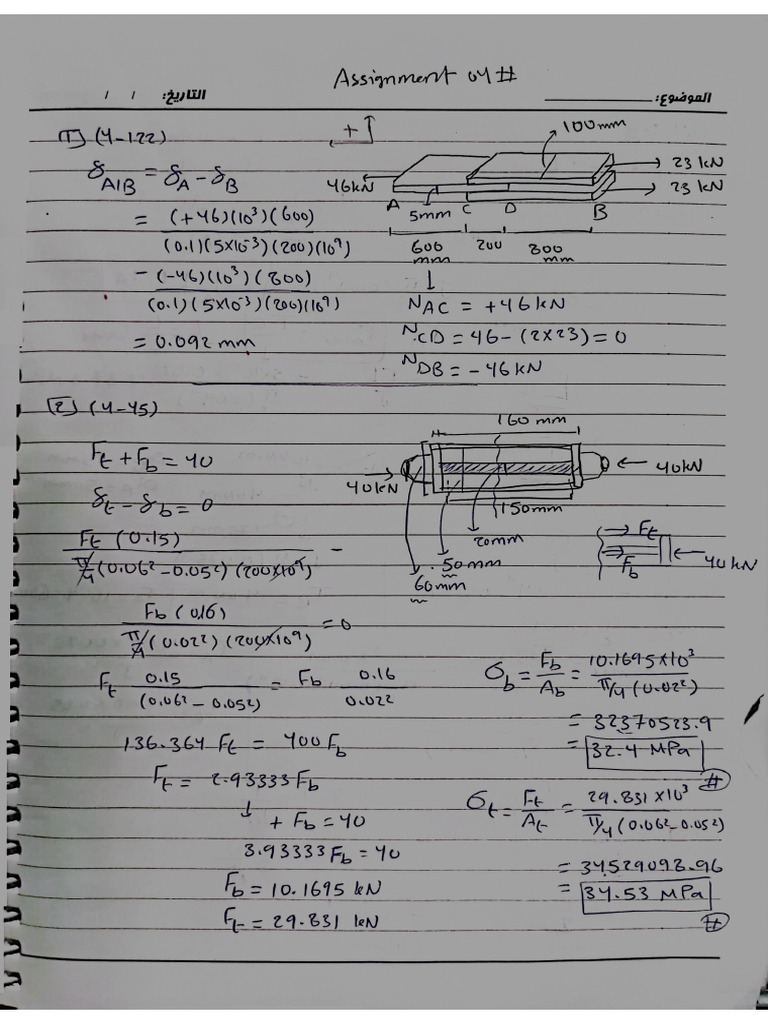 Assignment 04 #
الموضوع: التاريخ: / /
1 (4-122)
δA/B = δA - δB
= (+46)(10³)(600) / (0.1)(5×10⁻³)(200)(10⁹)
- (-46)(10³)(800) / (0.1)(5×10⁻³)(200)(10⁹)
= 0.092 mm
+
100mm
46kN
23 kN
23 kN
A 5mm C D B
600 mm 200 800 mm
N AC = +46 kN
N CD = 46 - (2×23) = 0
N DB = -46 kN
2 (4-45)
Ft + Fb = 40
δt - δb = 0
Ft (0.15) / π/4 (0.06² - 0.05²) (200×10⁹) -
Fb (0.16) / π/4 (0.02²) (200×10⁹) = 0
Ft 0.15 / (0.06² - 0.05²) = Fb 0.16 / 0.02²
136.364 Ft = 400 Fb
Ft = 2.93333 Fb
↓ + Fb = 40
3.93333 Fb = 40
Fb = 10.1695 kN
Ft = 29.831 kN
160 mm
40kN
40kN
150mm
20mm
50 mm
60 mm
Ft
Fb
40 kN
σb = Fb / Ab = 10.1695×10³ / π/4 (0.02²)
= 32370523.9
= 32.4 MPa
#
σt = Ft / At = 29.831×10³ / π/4 (0.06² - 0.05²)
= 34529098.96
= 34.53 MPa
#